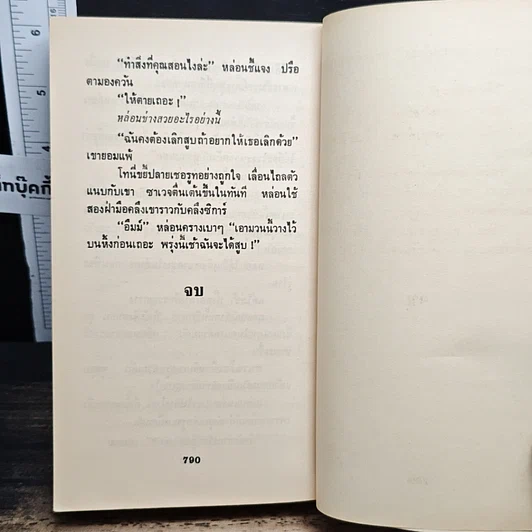 “ทำสิ่งที่คุณสอนไงล่ะ” หล่อนชี้แจง ปรือ
ตามองควัน
“ให้ตายเถอะ !”
หล่อนช่างสวยอะไรอย่างนี้
“ฉันคงต้องเลิกสูบถ้าอยากให้เธอเลิกด้วย”
เขายอมแพ้
โทนี่ขยี้ปลายเชอรูทอย่างถูกใจ เลื่อนไถลตัว
แนบกับเขา ซาเวจตื่นเต้นขึ้นในทันที หล่อนใช้
สองฝ่ามือคลึงเขาราวกับคลึงซิการ์
“อืมม์” หล่อนครางเบาๆ “เอามวนนี้วางไว้
บนหิ้งก่อนเถอะ พรุ่งนี้เช้าฉันจะได้สูบ !”
จบ
790